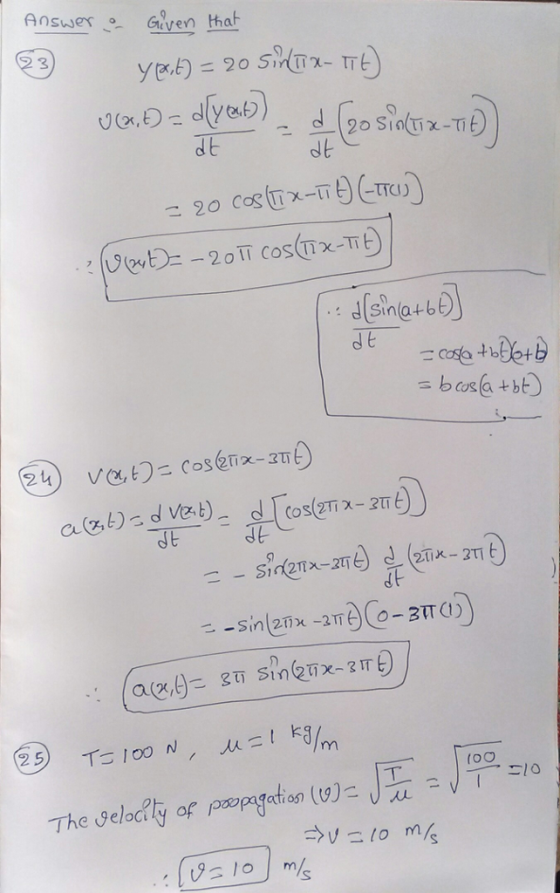 Answer :- Given that
(23) y(x,t) = 20 sin(πx - πt)
v(x,t) = d(y(x,t))/dt = d/dt (20 sin(πx-πt))
= 20 cos(πx-πt)(-π(1))
∴ v(x,t) = -20π cos(πx-πt)
∵ d[sin(a+bt)]/dt
= cos(a+bt)(0+b)
= b cos(a+bt)
(24) V(x,t) = cos(2πx-3πt)
a(x,t) = d V(x,t)/dt = d/dt [cos(2πx-3πt)]
= - sin(2πx-3πt) d/dt (2πx-3πt)
= -sin(2πx-3πt)(0-3π(1))
∴ a(x,t) = 3π sin(2πx-3πt)
(25) T=100 N, μ=1 kg/m
The velocity of propagation (v) = √(T/μ) = √(100/1) = 10
⇒ v = 10 m/s
∴ v=10 m/s